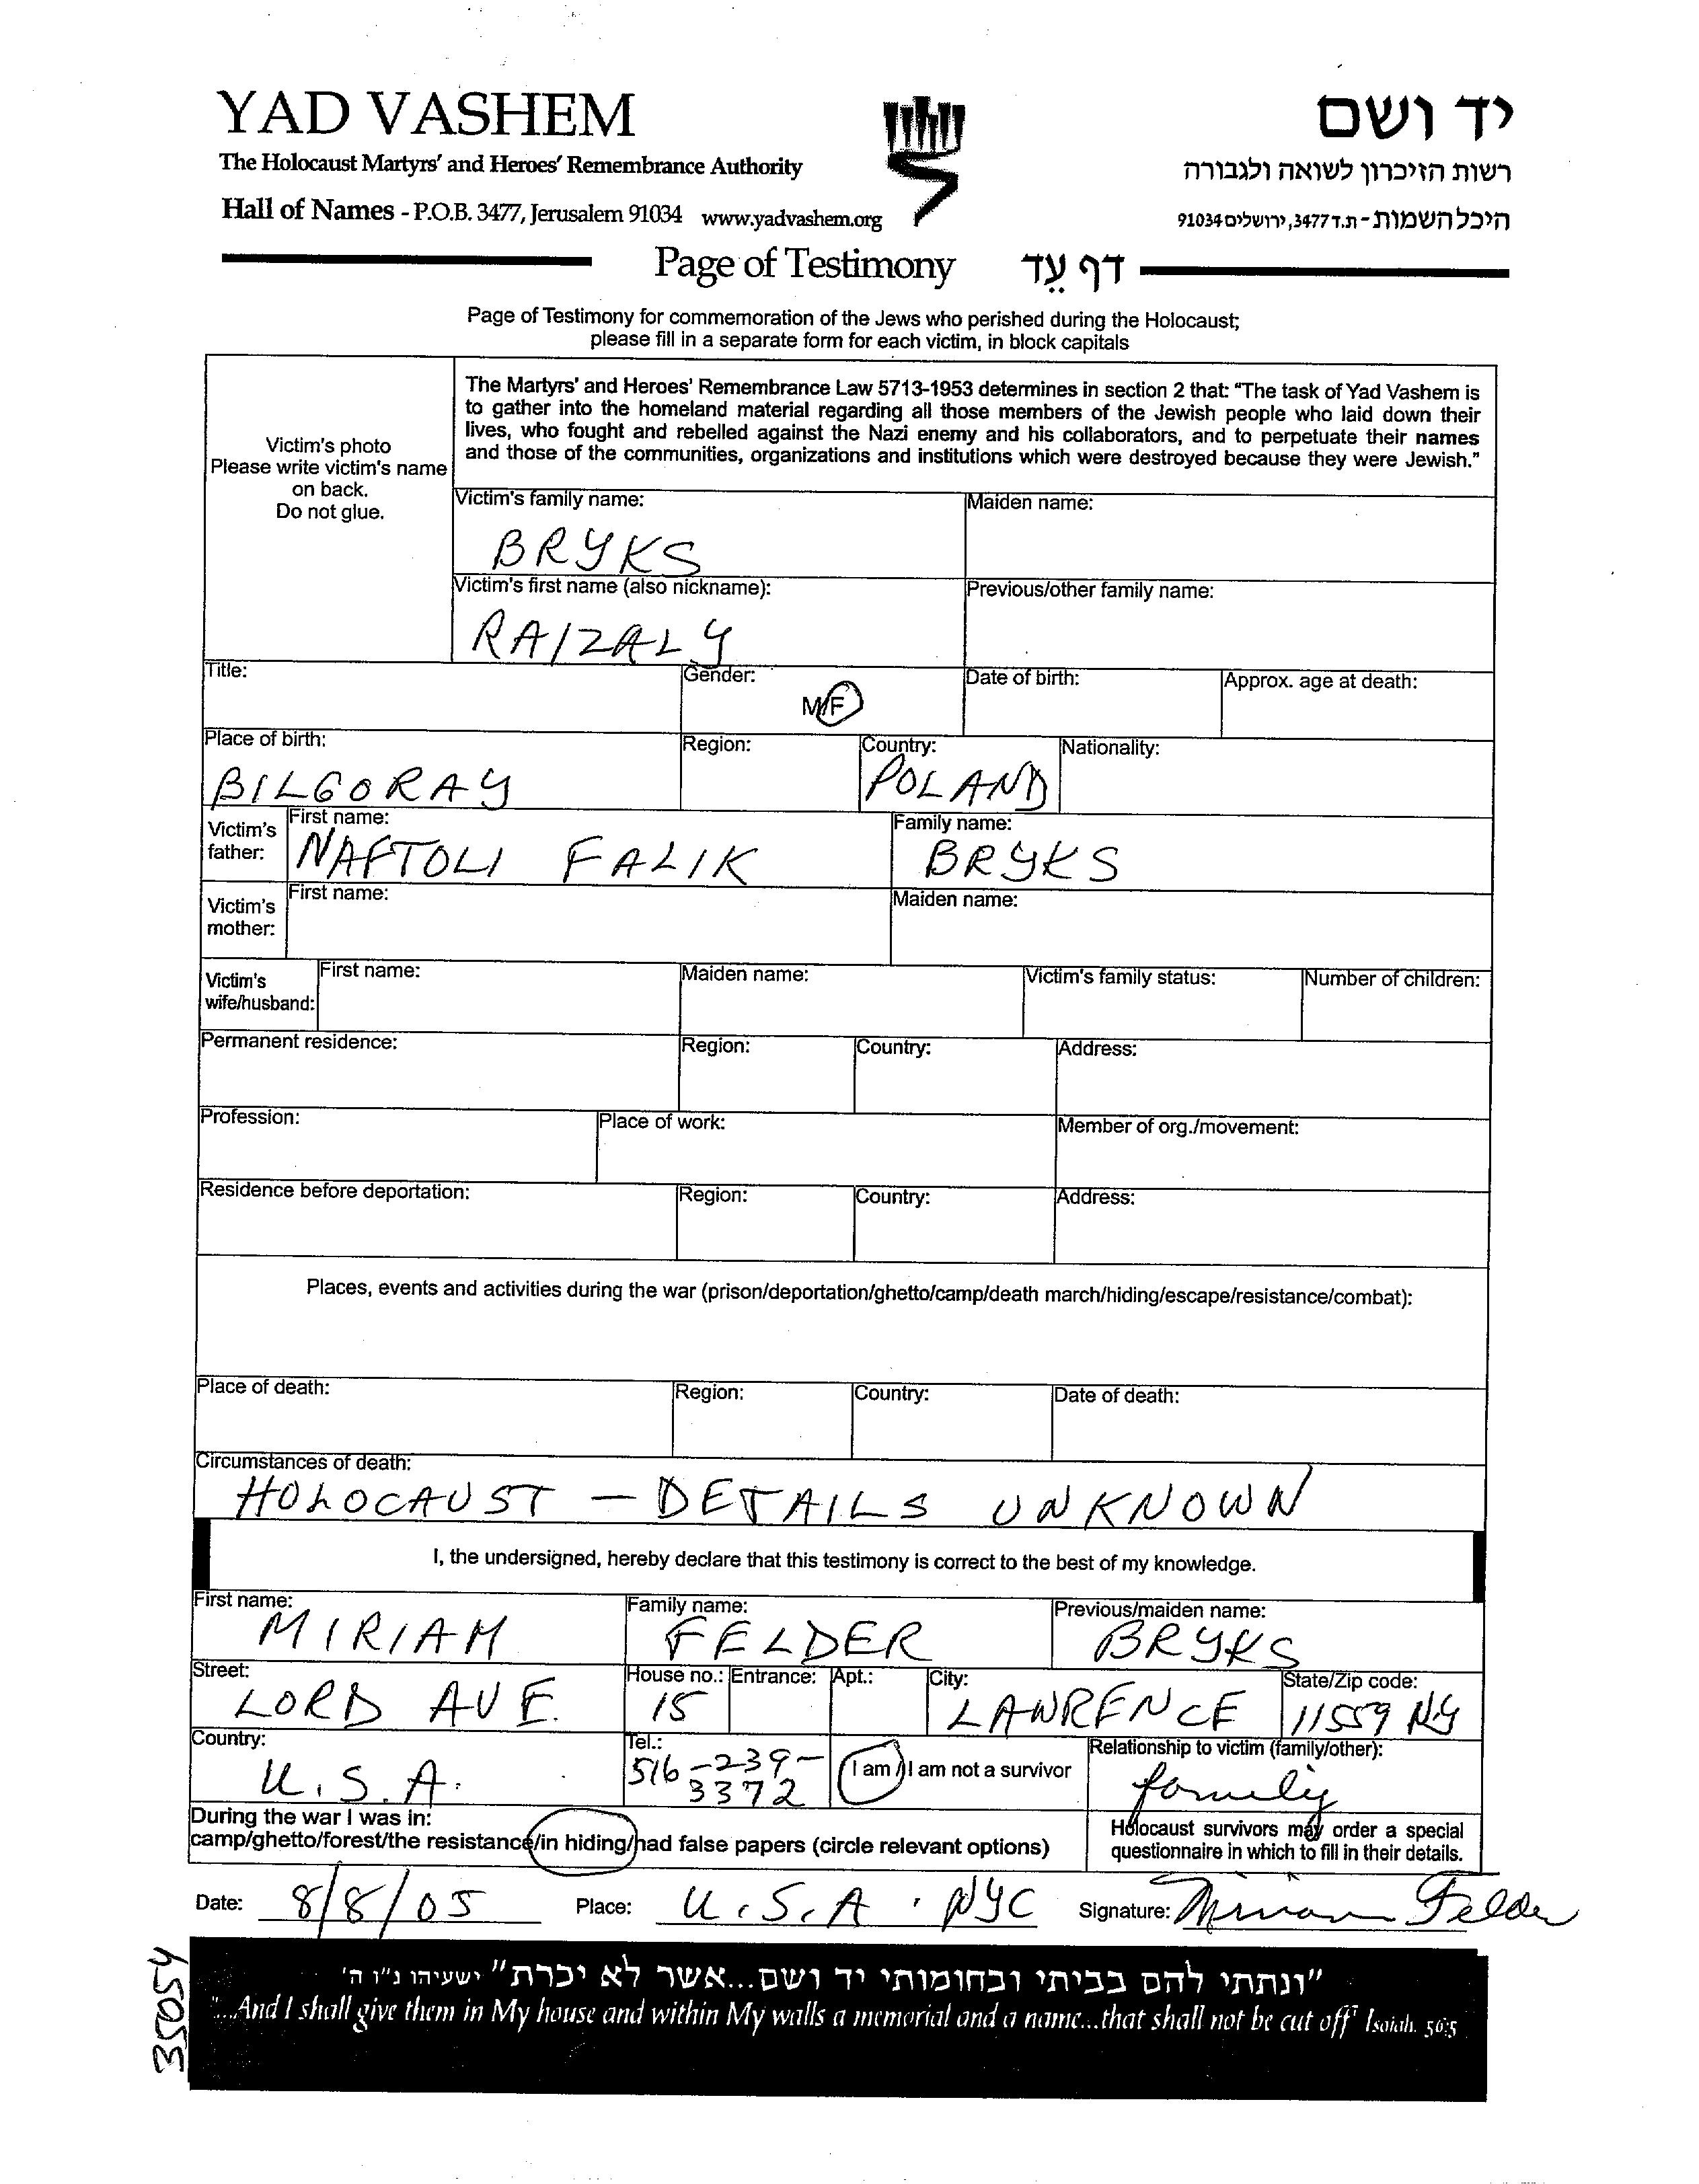 YAD VASHEM
יד ושם
The Holocaust Martyrs' and Heroes' Remembrance Authority
רשות הזיכרון לשואה ולגבורה
Hall of Names - P.O.B. 3477, Jerusalem 91034 www.yadvashem.org
היכל השמות - ת.ד 3477, ירושלים 91034
Page of Testimony דף עֵד
Page of Testimony for commemoration of the Jews who perished during the Holocaust;
please fill in a separate form for each victim, in block capitals
Victim's photo
Please write victim's name
on back.
Do not glue.
The Martyrs' and Heroes' Remembrance Law 5713-1953 determines in section 2 that: "The task of Yad Vashem is
to gather into the homeland material regarding all those members of the Jewish people who laid down their
lives, who fought and rebelled against the Nazi enemy and his collaborators, and to perpetuate their names
and those of the communities, organizations and institutions which were destroyed because they were Jewish."
Victim's family name: Maiden name:
BRYKS
Victim's first name (also nickname): Previous/other family name:
RAIZALY
Title: Gender: M/F Date of birth: Approx. age at death:
Place of birth: Region: Country: Nationality:
BILGORAY POLAND
Victim's father: First name: Family name:
NAFTOLI FALIK BRYKS
Victim's mother: First name: Maiden name:
Victim's wife/husband: First name: Maiden name: Victim's family status: Number of children:
Permanent residence: Region: Country: Address:
Profession: Place of work: Member of org./movement:
Residence before deportation: Region: Country: Address:
Places, events and activities during the war (prison/deportation/ghetto/camp/death march/hiding/escape/resistance/combat):
Place of death: Region: Country: Date of death:
Circumstances of death:
HOLOCAUST - DETAILS UNKNOWN
I, the undersigned, hereby declare that this testimony is correct to the best of my knowledge.
First name: Family name: Previous/maiden name:
MIRIAM FELDER BRYKS
Street: House no.: Entrance: Apt.: City: State/Zip code:
LORD AVE. 15 LAWRENCE 11559 NY
Country: Tel.: Relationship to victim (family/other):
U.S.A. 516-239-3372 I am / I am not a survivor family
During the war I was in:
camp/ghetto/forest/the resistance/in hiding/had false papers (circle relevant options)
Holocaust survivors may order a special
questionnaire in which to fill in their details.
Date: 8/8/05 Place: U.S.A. NYC Signature: Miriam Felder
35054
"ונתתי להם בביתי ובחומותי יד ושם...אשר לא יכרת" ישעיהו נ"ו ה'
"...And I shall give them in My house and within My walls a memorial and a name...that shall not be cut off" Isaiah. 56:5